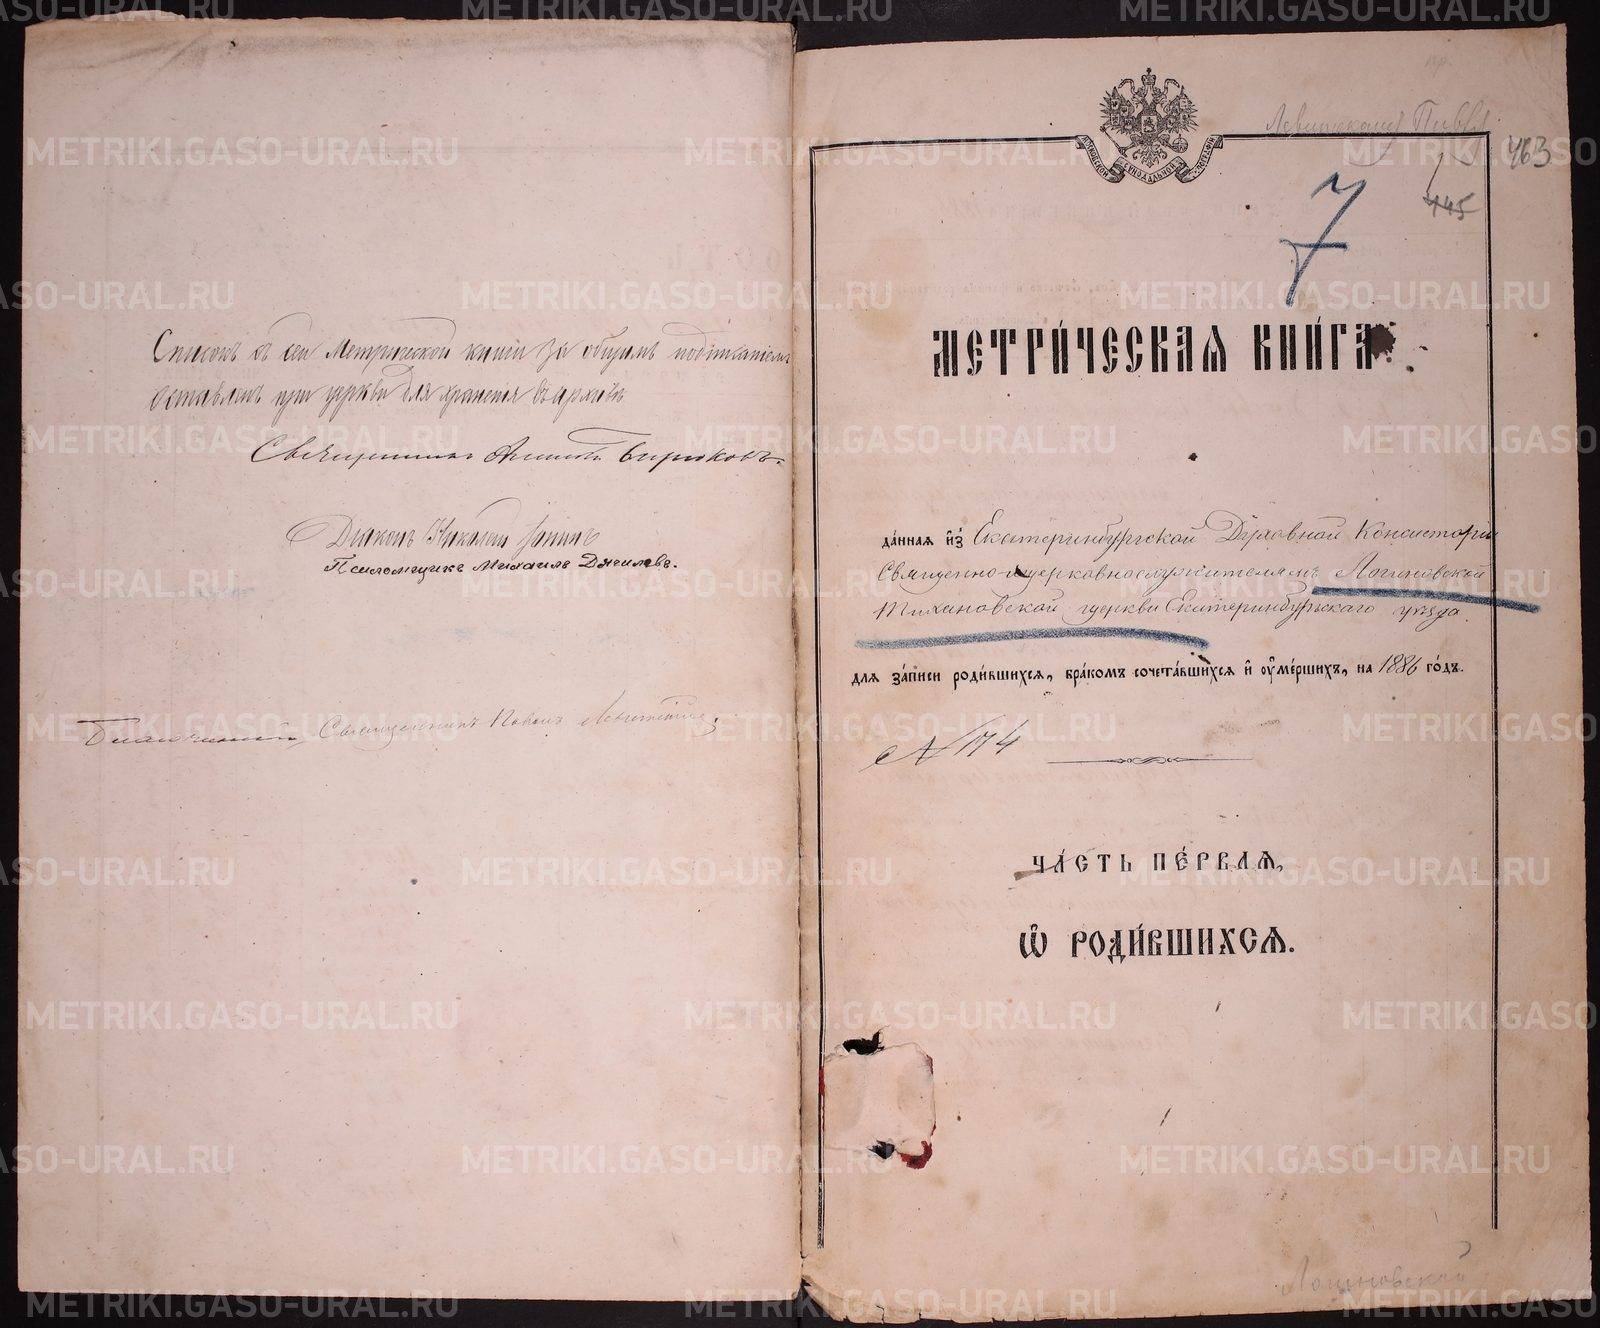 Списокъ съ сей Метрической книги за общимъ подписаніемъ
оставленъ при церкви для храненія въ архивѣ
Священникъ Бирюковъ.
Діаконъ Николай
Псаломщикъ Михаилъ Дягилевъ.
Благочинный, Священникъ Павелъ
МОСКОВСКОЙ СѴНОДАЛЬНОЙ ТѴПОГРАФІИ
463
145
7
МЕТРИ́ЧЕСКАѦ КНИ́ГА
да́ннаѧ и҆з̾ Екатеринбургской Духовной Консисторіи
Священно-церковнослужителямъ Логиновской
Тихановской церкви Екатеринбургскаго уѣзда.
длѧ за́писи роди́вшихсѧ, бра́комъ сочета́вшихсѧ и҆ ᲂу҆ме́ршихъ, на 1886 го́дъ.
№ 174
ЧА́СТЬ ПЕ́РВАѦ,
Ѽ РОДИ́ВШИХСѦ.
Логиновской
METRIKI.GASO-URAL.RU